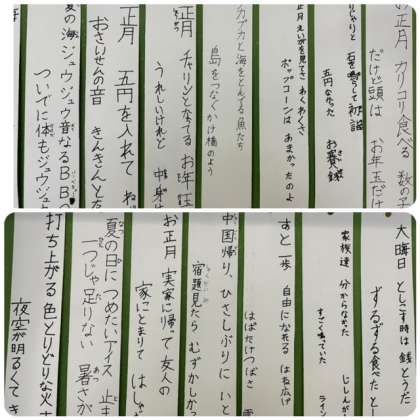 お正月 カリコリ食べる 数の子
だけど頭は お年玉だけ
じゃりと 石を鳴らして 初詣
五円なかった お賽銭
正月 えいがを見てさ わくわくさ
ポップコーンは あまかったのよ
カプカと海をとんでる魚たち
島をつなぐかけ橋のよう
正月 チャリンとなてる お年玉
うれしいけれど 中身
正月 五円を入れて ね
おさいせんの音 きんきんとな
夏の海 ジュウジュウ音なるBB
ついでに体もジュウジュ
大晦日 としこす時は
ずるずる食べた と
家族達 分からなかった じしん
すごくゆれていた ライン
すと一歩 自由になれる はね広げ
はばたけつばさ
中国帰り、ひさしぶりに いと
宿題見たら むずかしか
お正月 実家に帰って 友人の
家にとまりて はしゃ
夏の日に つめたいアイス 止ま
一つじゃ足りない 暑さが
打ち上がる 色とりどりな 火
夜空が明るく